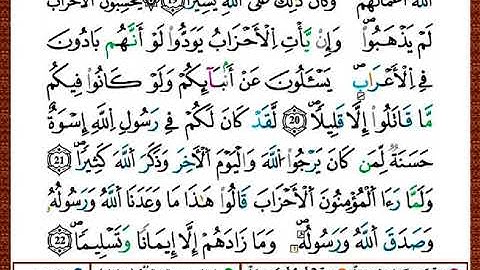 اَللَّهُ أَعْمَٰلَهُمْ وَكَانَ ذَٰلِكَ عَلَى اَللَّهِ يَسِيراً 19 يَحْسِبُونَ اَلْأَحْزَابَ
لَمْ يَذْهَبُواْ وَإِنْ يَأْتِ اِلْأَحْزَابُ يَوَدُّواْ لَوْ أَنَّهُم بَادُونَ
فِي اِلْأَعْرَابِ يَسْـَٔلُونَ عَنْ أَنۢبَآئِكُمْ وَلَوْ كَانُواْ فِيكُم
مَّا قَٰتَلُواْ إِلَّا قَلِيلاً 20 لَّقَدْ كَانَ لَكُمْ فِي رَسُولِ اِللَّهِ إِسْوَةٌ
حَسَنَةٌ لِّمَن كَانَ يَرْجُواْ اُللَّهَ وَالْيَوْمَ اَلْأٓخِرَ وَذَكَرَ اَللَّهَ كَثِيراً 21
وَلَمَّا رَءَا اَلْمُؤْمِنُونَ اَلْأَحْزَابَ قَالُواْ هَٰذَا مَا وَعَدَنَا اَللَّهُ وَرَسُولُهُ
وَصَدَقَ اَللَّهُ وَرَسُولُهُ وَمَا زَادَهُمْ إِلَّا إِيمَٰناً وَتَسْلِيماً 22